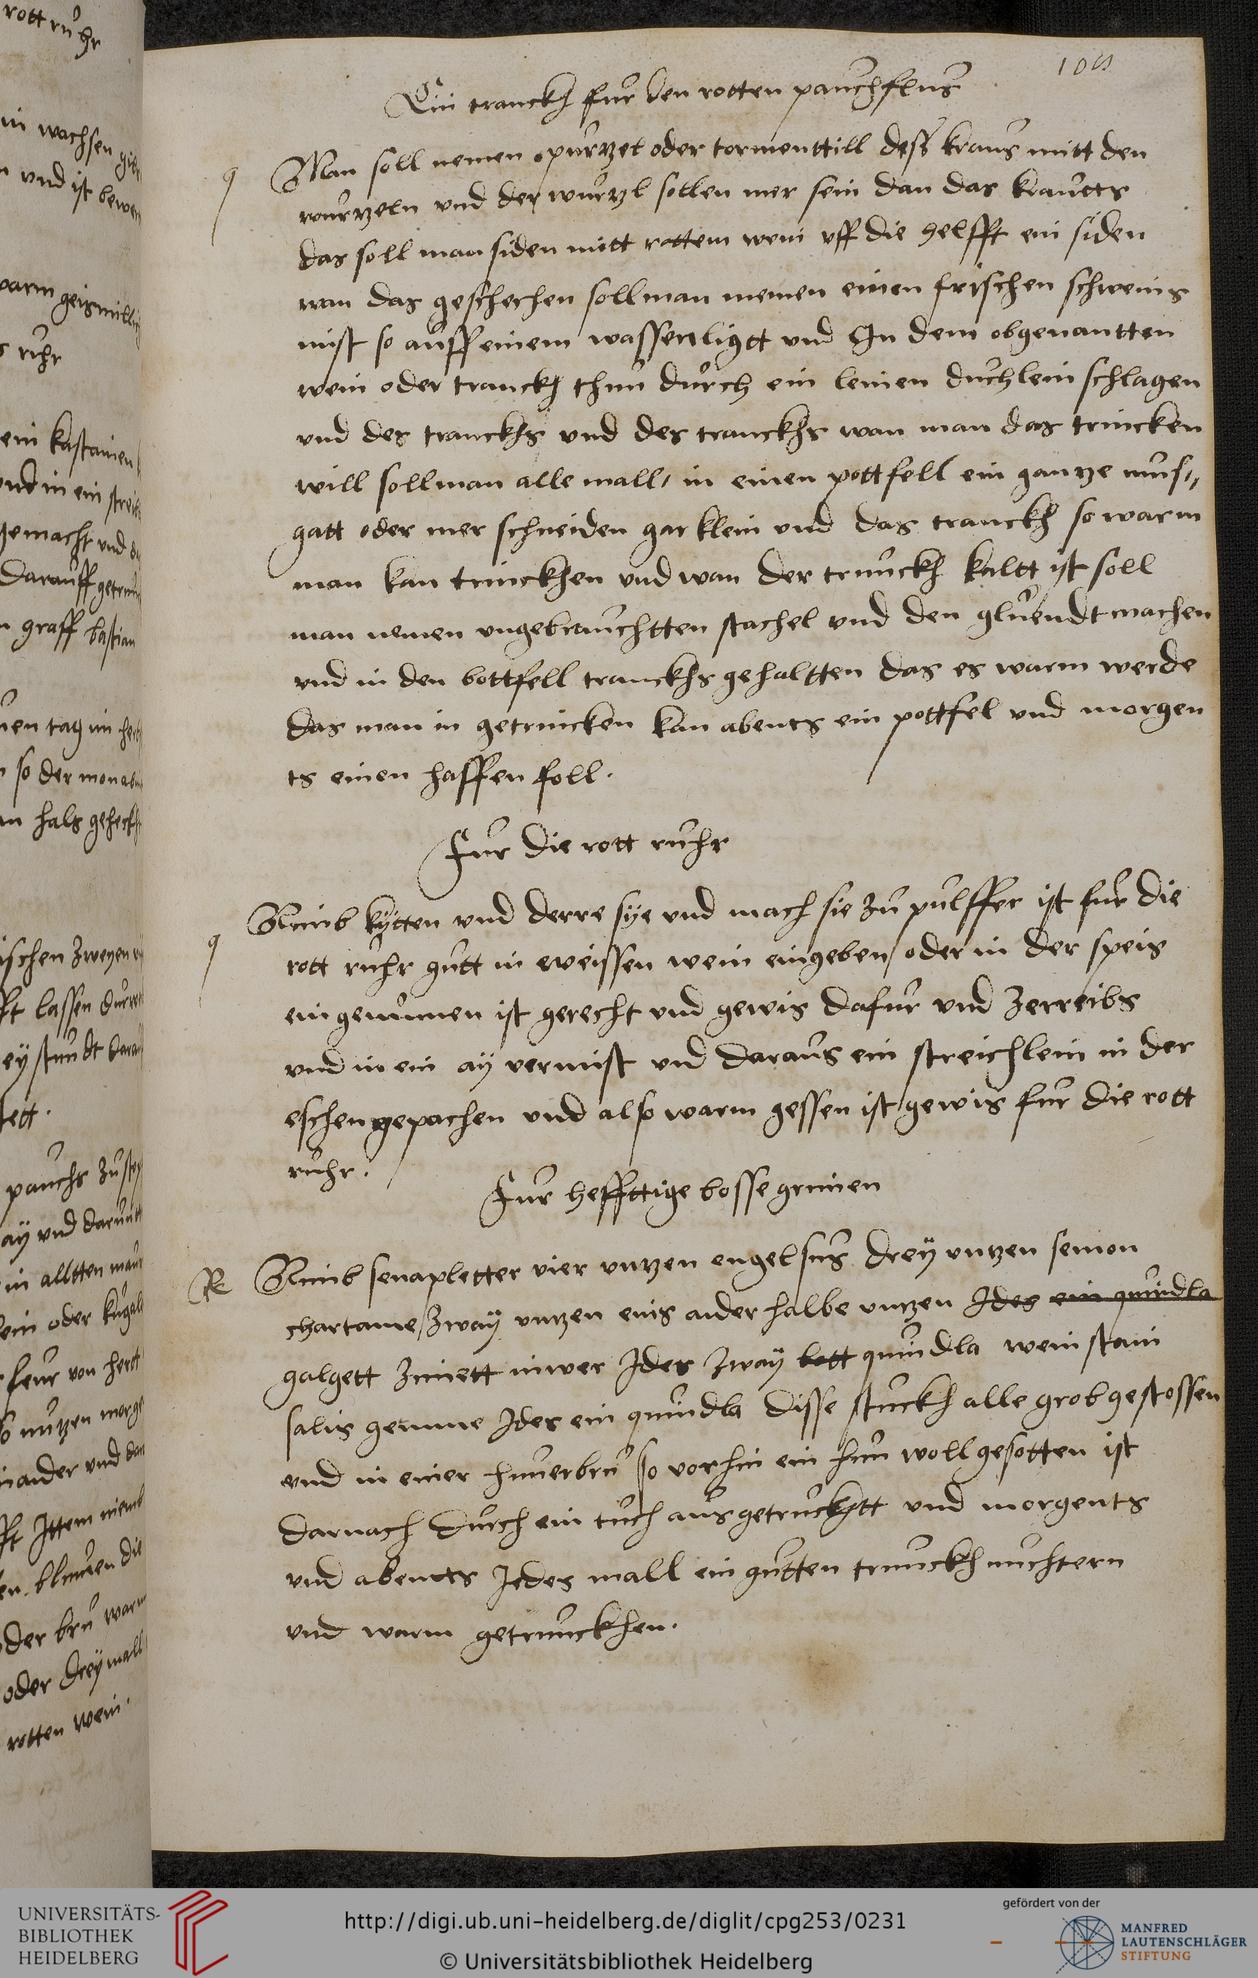 rott ruhr
wachsen
vnd ist bewert
warm geismillich
ruhr
ein kastanien
vnd in ein
gemacht vnd
darauff getru
graff bastian
tag im
so der mon ab
hals gehenckt
zwischen zweyen
lassen durr
stundt dar
pauchs zu stop
ay vnd dar
in alltten
oder kugel
feur von
nutzen morge
ander vnd dar
Ittem niemb
blumen die
oder bru warm
oder drey mall
rotten wein.
Ein tranckh fur den rotten pauchflus
Man soll nemen purtzel oder tormenttill dess kraus mitt den
wurtzeln vnd der wurtzl sollen mer sein dan das krautts
das soll man siden mitt rottem wein vff die helfft ein siden
wan das geschechen soll man nemen einen frischen schweins
mist so auff einem wassen ligtt vnd In dem obgenantten
wein oder tranckh thun durch ein leinen duchlein schlagen
vnd des tranckhs vnd des tranckhs wan man das trincken
will soll man alle mall, in einen pottfell ein gantze mus,,
gatt oder mer schneiden gar klein vnd das tranckh so warm
man kan trinckhen vnd wan der trunckh kaltt ist soll
man nemen vngebrauchtten stachel vnd den gluendt machen
vnd in den bottfell tranckhs gehaltten das es warm werde
das man in getrincken kan abents ein pottfel vnd morgen
ts einen haffen foll.
Fur die rott ruhr
Nimb kytten vnd derre sye vnd mach sie zu pulffer ist fur die
rott ruhr gutt in weissen wein eingeben oder in der speis
eingenumen ist gerecht vnd gewis dafur vnd zerreibs
vnd in ein ay vermist vnd daraus ein streichlein in der
eschen gepachen vnd also warm gessen ist gewis fur die rott
ruhr.
Fur hefftige bosse grimen
Nimb senapletter vier vntzen engelsus drey vntzen semon
chartame, zway vntzen enis ander halbe vntzen Ides ein quindla
galgett zimett inwer Ides zway lott quindla weinstain
salis gemme Ides ein quindla disse stuckh alle grob gestossen
vnd in einer hunerbru so vorhin ein hun woll gesotten ist
darnach durch ein tuch ausgetruckhtt vnd morgents
vnd abentts Jedes mall ein gutten trunckh nuchtern
vnd warm getrunckhen.
UNIVERSITÄTS-
BIBLIOTHEK
HEIDELBERG
http://digi.ub.uni-heidelberg.de/diglit/cpg253/0231
© Universitätsbibliothek Heidelberg
gefördert von der
MANFRED
LAUTENSCHLÄGER
STIFTUNG